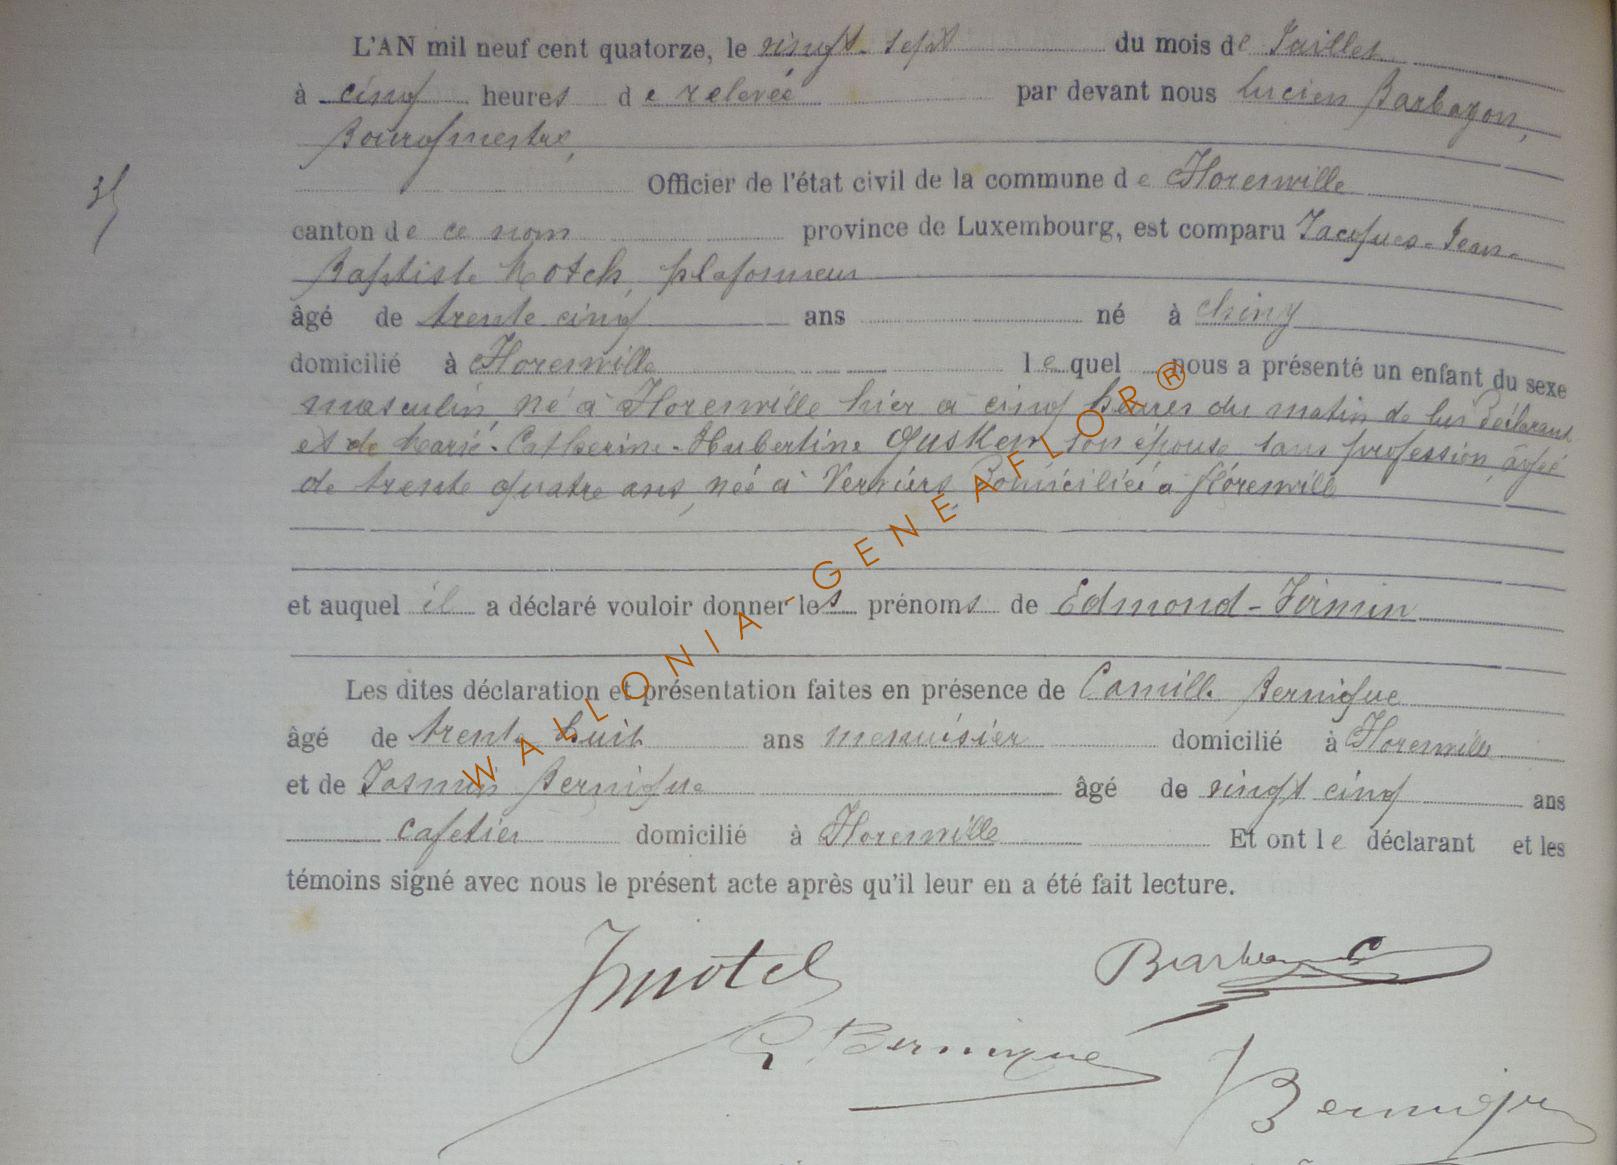 L'AN mil neuf cent quatorze, le vingt-sept du mois de Juillet
à cinq heures de relevée par devant nous Lucien Barbazon,
Bourgmestre,
35
Officier de l'état civil de la commune de Florenville
canton de ce nom province de Luxembourg, est comparu Jacques-Jean-
Baptiste Motch, plafonneur
âgé de trente cinq ans né à Chiny
domicilié à Florenville lequel nous a présenté un enfant du sexe
masculin, né à Florenville hier à cinq heures du matin de lui déclarant
et de Marie-Catherine-Hubertine son épouse sans profession, âgée
de trente quatre ans, née à Verviers, Domiciliée à Florenville
et auquel il a déclaré vouloir donner les prénoms de Edmond-Firmin
Les dites déclaration et présentation faites en présence de Camille Bernique
âgé de trente huit ans menuisier domicilié à Florenville
et de Jasmin Bernique âgé de vingt cinq ans
cafetier domicilié à Florenville Et ont le déclarant et les
témoins signé avec nous le présent acte après qu'il leur en a été fait lecture.
Bernique
Bernique
WALLONIA-GENEAFLOR®